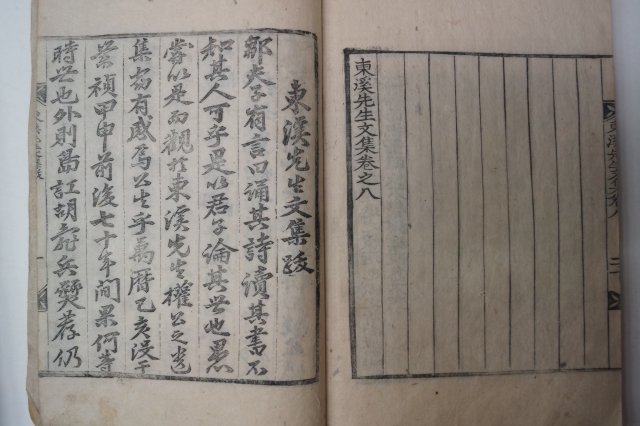 東溪先生文集卷之八
東溪先生文集跋
鄒夫子有言曰誦其詩讀其書不
知其人可乎是以君子論其世也愚
嘗以是而觀於東溪先生權公之遺
集窃有感焉公生乎萬曆乙亥沒于
崇禎甲申前後七十年間果何等
時世也外則島訌胡寇兵燹荐仍